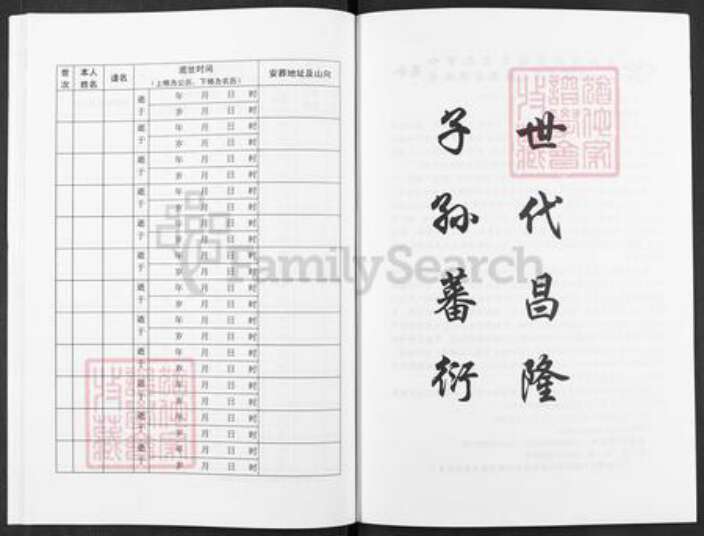 世次 本人姓名 谥名 逝世时间 安葬地址及山向
（上格为公历，下格为农历）
逝于 年 月 日 时
岁 月 日 时
逝于 年 月 日 时
岁 月 日 时
逝于 年 月 日 时
岁 月 日 时
逝于 年 月 日 时
岁 月 日 时
逝于 年 月 日 时
岁 月 日 时
逝于 年 月 日 时
岁 月 日 时
逝于 年 月 日 时
岁 月 日 时
逝于 年 月 日 时
岁 月 日 时
逝于 年 月 日 时
岁 月 日 时
逝于 年 月 日 时
岁 月 日 时
逝于 年 月 日 时
岁 月 日 时
逝于 年 月 日 时
岁 月 日 时
世代昌隆
子孙蕃衍
FamilySearch